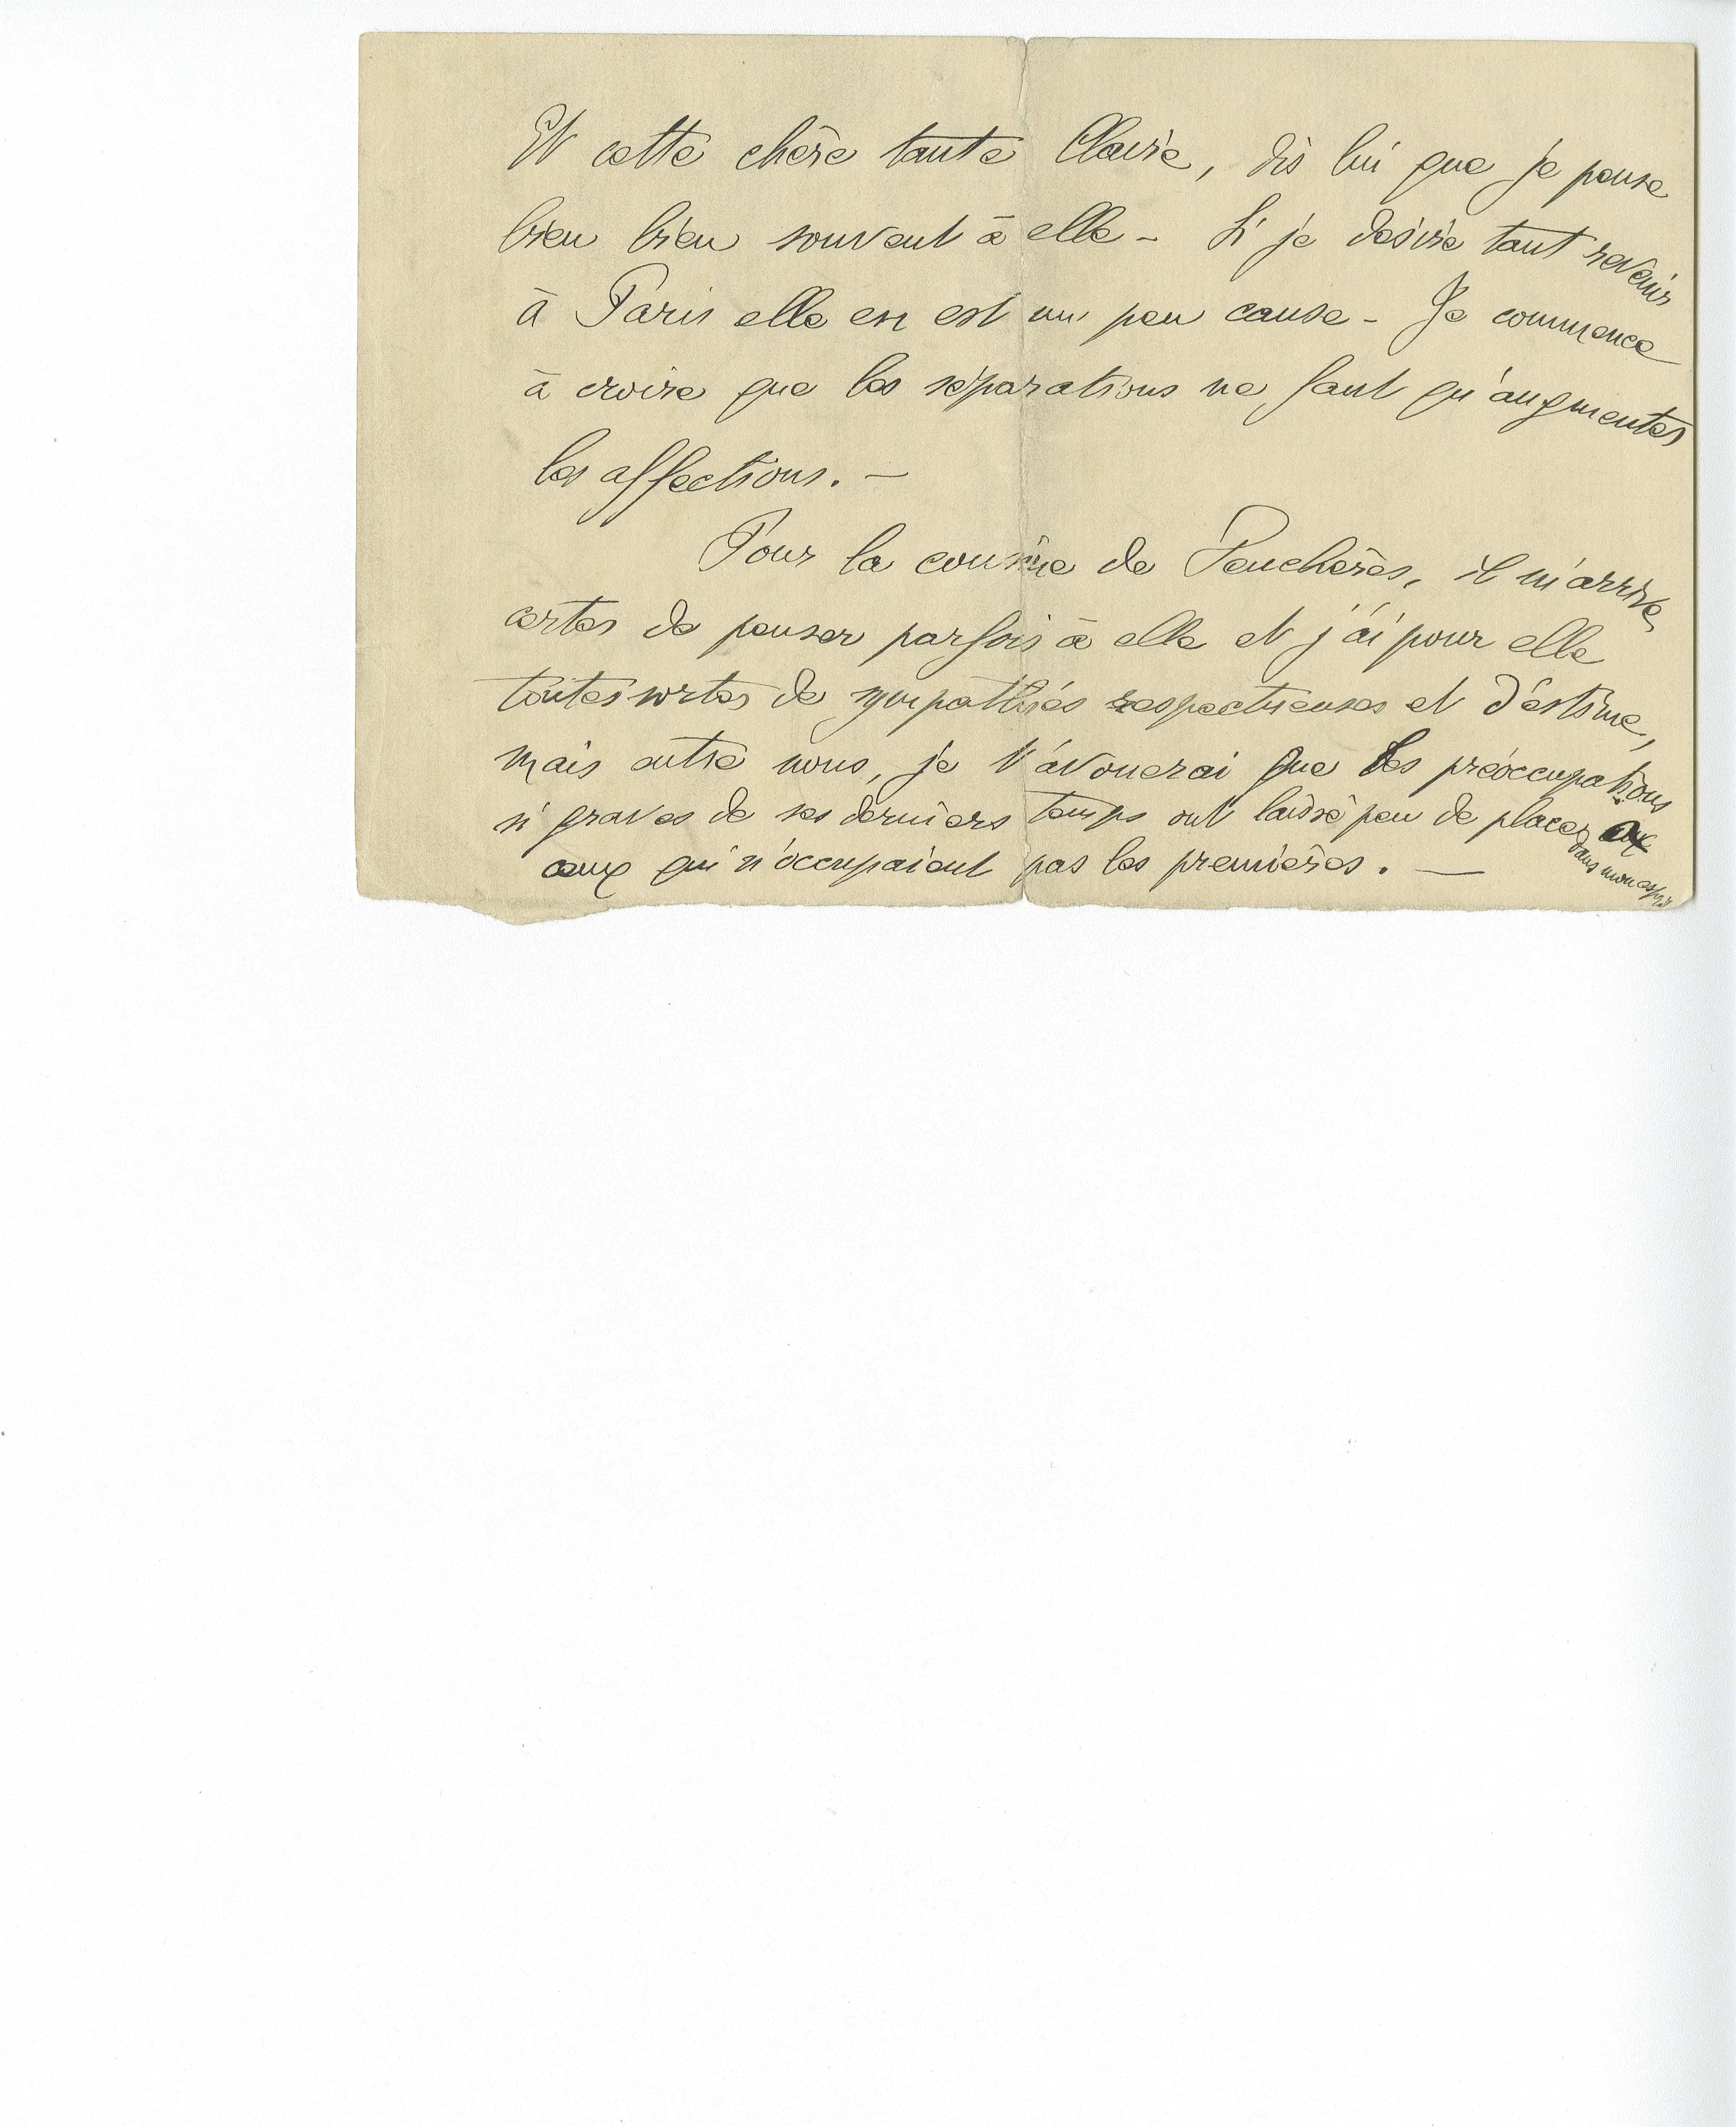 Et cette chère tante Claire, dis lui que je pense
bien bien souvent à elle - Si je désire tant revenir
à Paris elle en est un peu cause - Je commence
à croire que les séparations ne font qu'augmenter
les affections. -
Pour la cousine de Feuchères, il m'arrive
certes de penser parfois à elle et j'ai pour elle
toutes sortes de sympathies respectueuses et d'estime,
mais entre nous, je t'avouerai que les préoccupations
si graves de ses derniers temps ont laissé peu de places
dans mon esprit
aux qui n'occupaient pas les premières. -